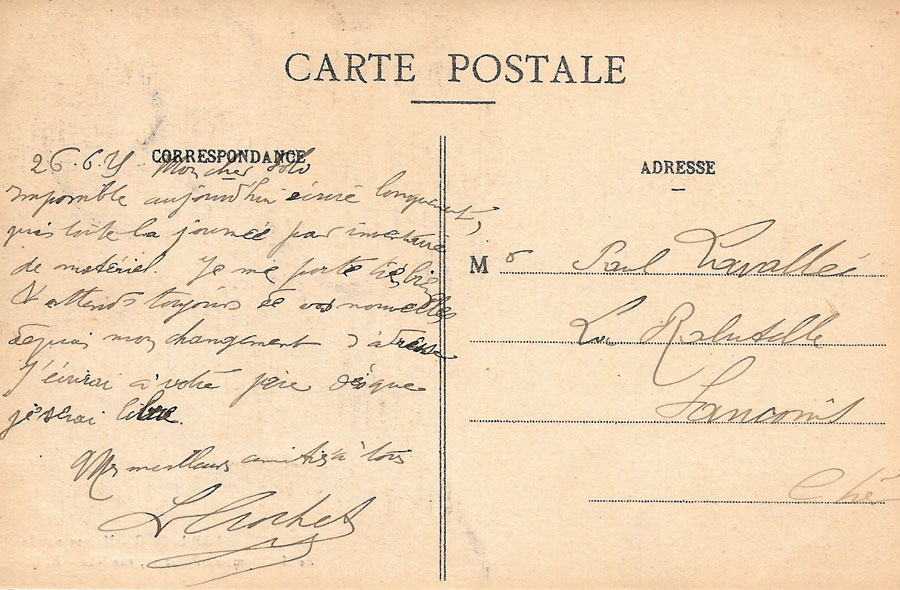 CARTE POSTALE
CORRESPONDANCE
26.6. Mon cher
Impossible aujourd'hui écrire longuement,
pris toute la journée par inventaire
de matériel. Je me porte très bien
Et attends toujours de vos nouvelles
depuis mon changement d'adresse
J'écrirai à votre père dès que
je serai libre.
Mes meilleurs amitiés à tous
L Crochet
ADRESSE
Mr Paul Lavallée
La
Sancoins
Cher